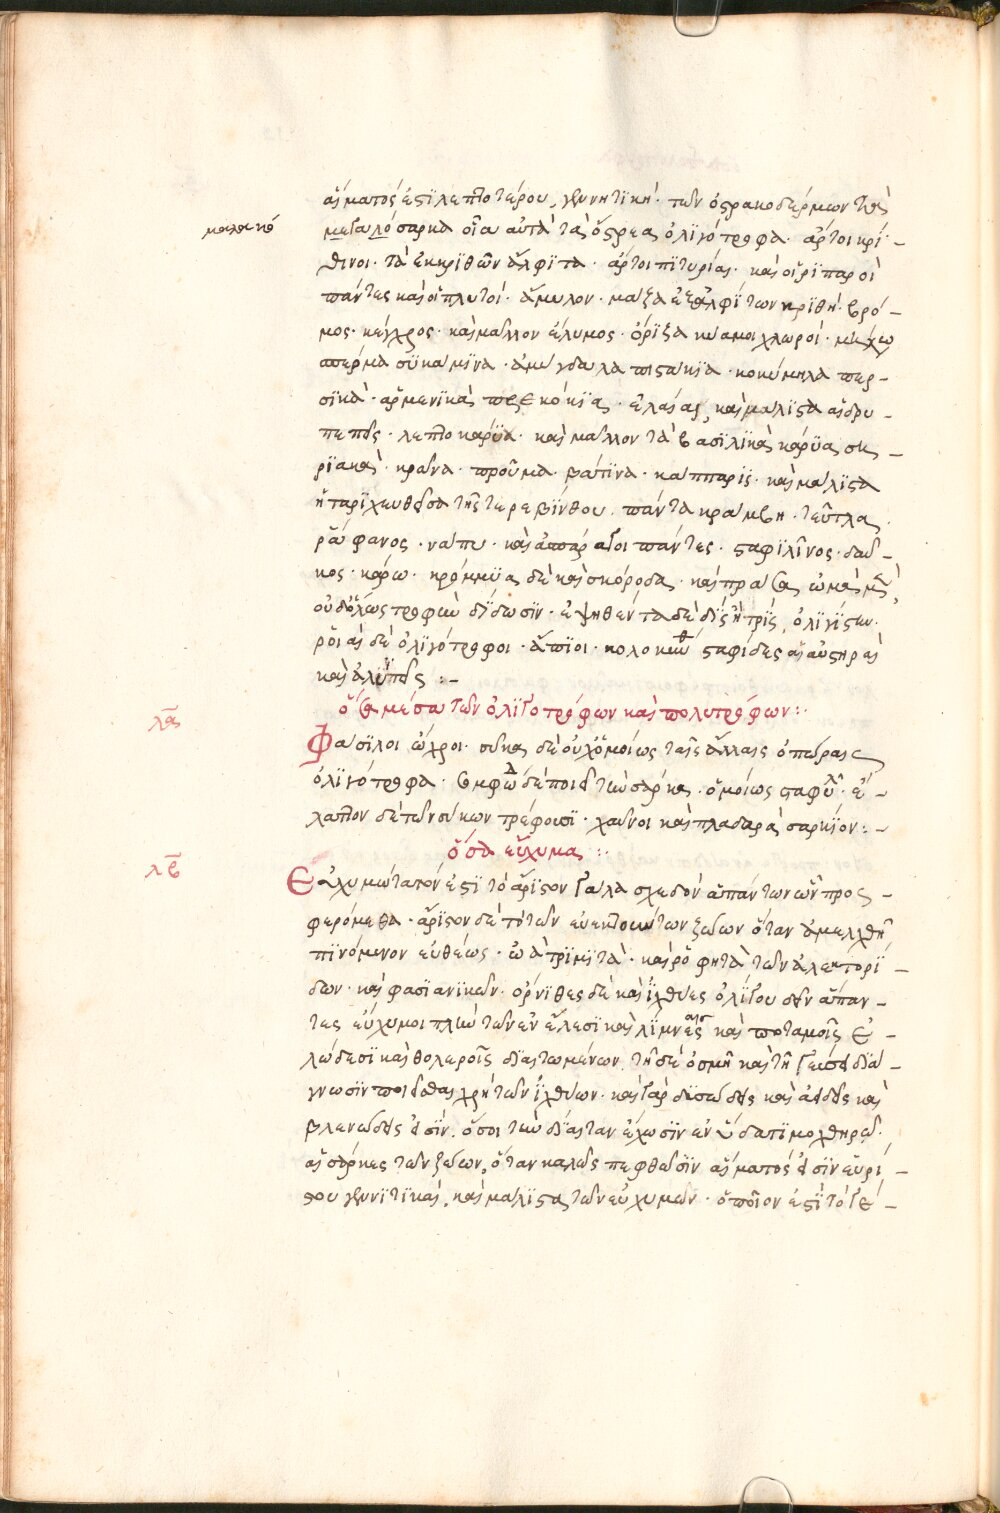 αἵματός ἐστι λεπτοτέρου γεννητική· τῶν ὀστρακοδέρμων τὰ
μαλακό
μεγαλόσαρκα οἷα αὐτὰ τὰ ὄστρεα ὀλιγότροφα· ἄρτοι κρί-
θινοι· τὰ ἐκ κριθῶν ἄλφιτα· ἄρτοι πιτυρίαι· καὶ οἱ ῥυπαροὶ
πάντες καὶ οἱ πλυτοί· ἄμυλον· μάζα ἐξ ἀλφίτων κριθή· βρό-
μος· κέγχρος· καὶ μᾶλλον ἔλυμος· ὄριζα κυάμοι χλωροί· μήκων
σπέρμα συκάμινα· ἀμύγδαλα πιστάκια· κοκύμηλα περ-
σικὰ· ἀρμενικὰ πρεκόκια· ἐλαίαι, καὶ μάλιστα αἱ δρυ-
πεπεῖς· λεπτοκάρυα· καὶ μᾶλλον τὰ βασιλικὰ κάρυα συ-
ριακὰ· κράνα· προῦμα· βάτινα· κάππαρις· καὶ μάλιστα
ἡ ταριχευθεῖσα τῆς τερεβίνθου· πάντα κράμβη· τεῦτλα
ῥάφανος· νάπυ· καὶ ἀσπάραγοι πάντες· σταφιλῖνος· δαῦ-
κος· κάρω· κρόμμυα δὲ καὶ σκόροδα· καὶ πράσα ὠμὰ μὲν,
οὐδόλως τροφὴν δίδωσιν· ἑψηθέντα δὲ δὶς ἢ τρὶς, ὀλιγίστην·
ῥοιαὶ δὲ ὀλιγότροφοι· ἄπιοι· κολοκύνθ σταφίδες αἱ αὐστηραὶ
καὶ ἀλιπεῖς :-
ὅσα μέσα τῶν ὀλιγοτρόφων καὶ πολυτρόφων :·
λα
Φασίλοι ὦχροι· σῦκα δὲ οὐχ ὁμοίως ταῖς ἄλλαις ὀπώραις
ὀλιγότροφα· σομφὼδ δὲ ποιεῖ τὴν σάρκα· ὁμοίως σταφυλ· ἔ-
λαττον δὲ τῶν σύκων τρέφουσι· χαῦνοι καὶ πλαδαρὰ σαρκίον :-
ὅσα εὔχυμα :·
λβ
Εὐχυμώτατόν ἐστι τὸ ἄριστον γάλα σχεδὸν ἁπάντων ὧν προσ-
φερόμεθα· ἄριστον δὲ τὸ τῶν εὐεκτούντων ζώων ὅταν ἀμελχθῆ
πινόμενον εὐθέως· ὠὰ τρμιτὰ· καὶ ῥοφητὰ τῶν ἀλεκτορί-
δων· καὶ φασιανικῶν· ὀρνιθες δὲ καὶ ἰχθύες ὀλίγου δεῖν ἅπαν-
τες εὔχυμοι πλὴν τῶν ἐν ἕλεσι καὶ λίμναις καὶ ποταμοῖς ἑ-
λώδεσι καὶ θολεροῖς διαιτωμένων. τῆ δὲ ὀσμῆ καὶ τῆ γεύσει διά-
γνωσιν ποιεῖσθαι χρὴ τῶν ἰχθύων· καὶ γὰρ δυσώδεις καὶ ἀειδεῖς καὶ
βλενώδεις εἰσίν. ὅσοι τὴν δίαιταν ἔχωσιν ἐν ὕδατι μοχθηρῶ·
αἱ σάρκες τῶν ζώων, ὅταν καλῶς πεφθῶσιν αἵματός εἰσιν εὐρί-
στου γεννιτικαὶ, καὶ μάλιστα τῶν εὐχύμων· ὁποῖον ἐστὶ τό γε-